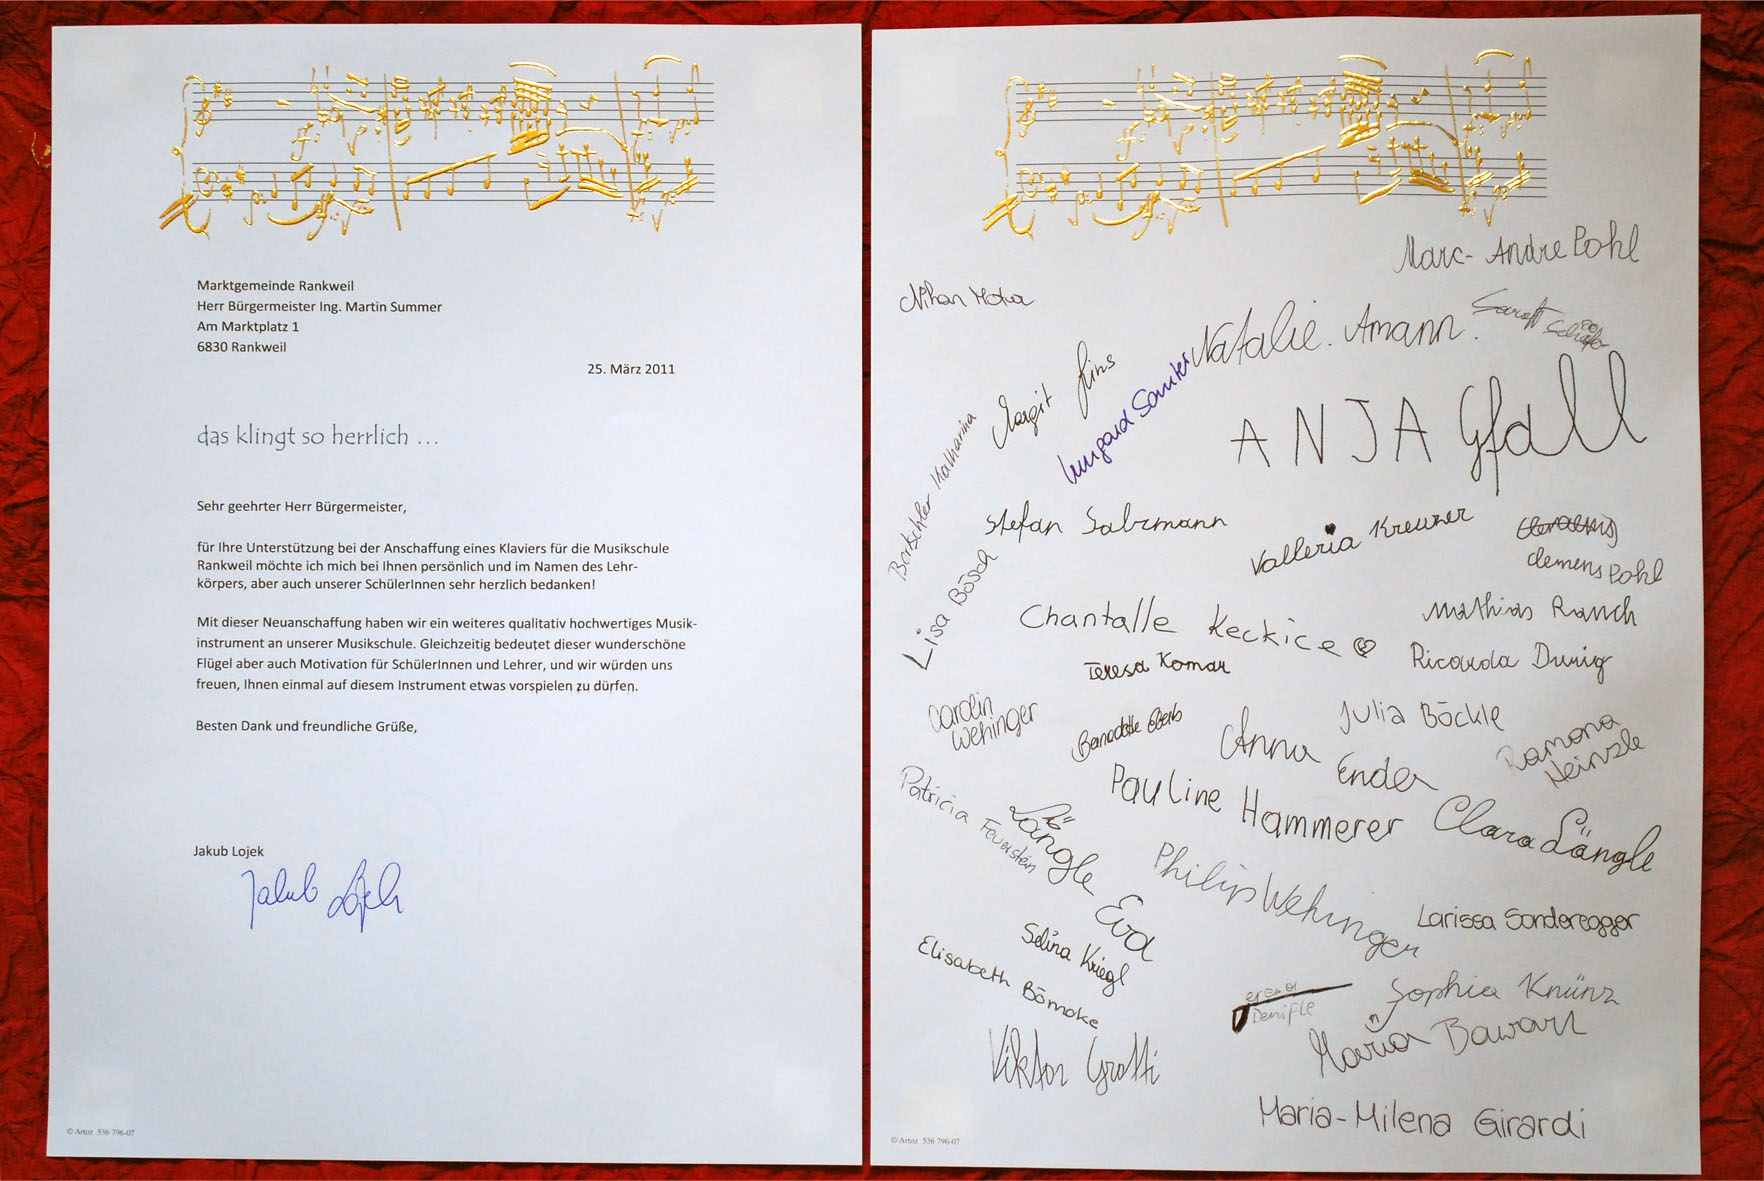 Marktgemeinde Rankweil
Herr Bürgermeister Ing. Martin Summer
Am Marktplatz 1
6830 Rankweil
25. März 2011
das klingt so herrlich ...
Sehr geehrter Herr Bürgermeister,
für Ihre Unterstützung bei der Anschaffung eines Klaviers für die Musikschule
Rankweil möchte ich mich bei Ihnen persönlich und im Namen des Lehr-
körpers, aber auch unserer SchülerInnen sehr herzlich bedanken!
Mit dieser Neuanschaffung haben wir ein weiteres qualitativ hochwertiges Musik-
instrument an unserer Musikschule. Gleichzeitig bedeutet dieser wunderschöne
Flügel aber auch Motivation für SchülerInnen und Lehrer, und wir würden uns
freuen, Ihnen einmal auf diesem Instrument etwas vorspielen zu dürfen.
Besten Dank und freundliche Grüße,
Jakub Lojek
Jakub Lojek
© Artoz 536 796-07
Marc-Andre Pohl
Nihan
Natalie. Amann.
Margit
Irmgard
ANJA Gfall
Katharina
Stefan Salzmann
Valleria Kreuzer
Clemens Pohl
Lisa Bösch
Chantalle Keckice
Mathias Ranch
Teresa Komar
Ricarda
Carolin
Wehinger
Bernadette
Anna
Ender
Julia Böckle
Ramona
Heinzle
Patricia Feuerstein
Längle Eva
Pauline Hammerer
Clara Längle
Philip Wehinger
Larissa Sonderegger
Selina Kriegl
Elisabeth
Denifle
Sophia Knünz
Maria Bawart
Viktor
Maria-Milena Girardi
© Artoz 536 796-07